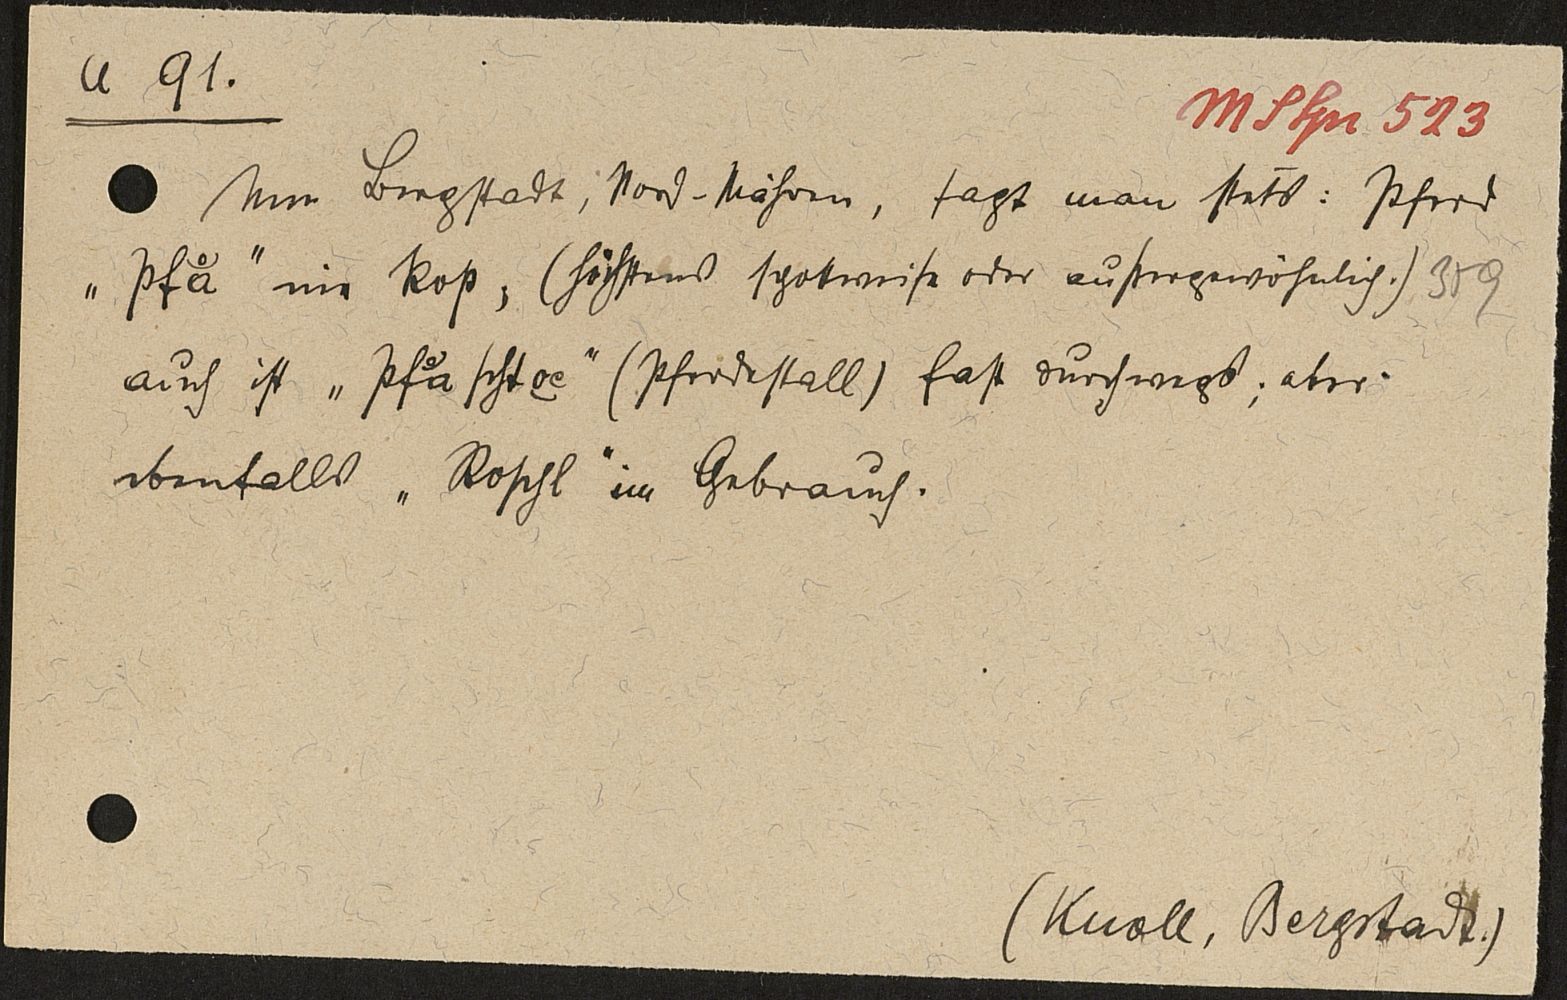 U 91.
MSchn 523
Um Bergstadt, Nord-Mähren, sagt man stets: Pferd
„Pfå“ nie Roß, (höchstens spottweise oder außergewöhnlich.) 359
auch ist „Pfåscht (Pferdestall) fast durchwegs; aber
ebenfalls „Roschl“ im Gebrauch.
(Knoll, Bergstadt.)